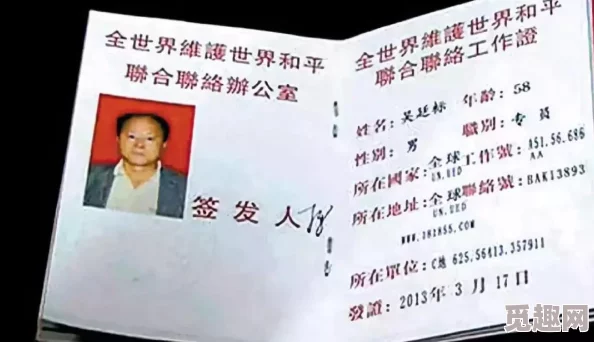 全世界維護世界和平
聯合聯絡辦公室
签发人
全世界維護世界和平
聯合聯絡工作證
姓名:吴廷标 年龄:58
性别:男 職别:专员
所在國家:全球工作號:A51.56.686
UN.UED AA
所在地址:全球聯絡號:BAK13893
UN.UED
WWW.181855.COM
所在單位:C地 625.56413.357911
發證:2013年3月17日
觅趣网